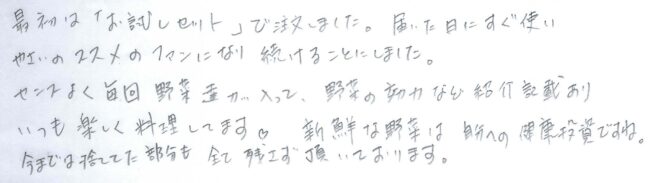 最初は「お試しセット」で注文しました。届いた日にすぐ使い
やさいのススメのファンになり 続けることにしました。
センスよく毎回 野菜達が入って、野菜の効力など紹介記載あり
いつも楽しく料理してます。新鮮な野菜は 自分への健康投資ですね。
今までは捨ててた部分も 全て残さず頂いております。